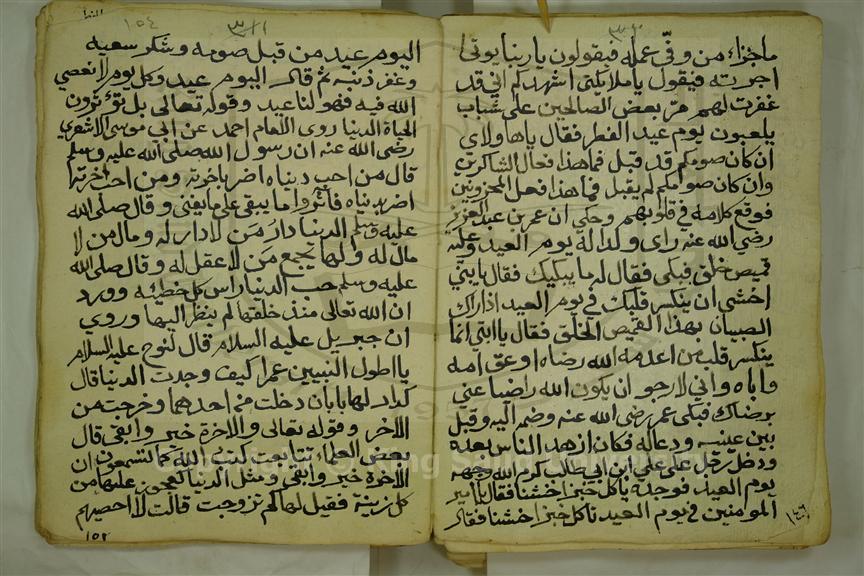 ماجزاء من وفّى عمله فيقولون يا ربنا يوتى
اجرته فيقول يا ملايكتي اشهدكم اني قد
غفرت لهم مرّ بعض الصالحين على شباب
يلعبون يوم عيد الفطر فقال يا هاولاي
ان كان صومكم قد قبل فما هذا فعال الشاكرين
وان كان صوامكم لم يقبل فما هذا فعل المحزونين
فوقع كلامه في قلوبهم وحكي ان عمر بن عبد العزيز
رضي الله عنه راى ولدا له يوم العيد وعليه
قميص خلق فبكى فقال له ما يبكيك فقال يا بني
اخشى ان ينكسر قلبك في يوم العيد اذا راك
الصبيان بهذا القميص الخلق فقال يا ابتي انما
ينكسر قلب من اعدمه الله رضاه او عق امه
واباه واني لارجو ان يكون الله راضيا عني
برضاك فبكى عمر رضي الله عنه وضم اليه وقبل
بين عينيه ودعاله فكان ازهد الناس بعده
ودخل رجل على علي ابن ابي طالب كرم الله وجهه
يوم العيد فوجده ياكل خبزا خشنا فقال يا امير
المومنين في يوم العيد تاكل خبزا خشنا فقال
اليوم عيد من قبل صومه وشكر سعيه
وغفر ذنبه ثم قال اليوم عيد وكل يوم لا نعصي
الله فيه فهو لنا عيد وقوله تعالى بل تؤثرون
الحياة الدنيا روى الامام احمد عن ابي موسى الاشعري
رضي الله عنه ان رسول الله صلى الله عليه وسلم
قال من احب دنياه اضر باخرته ومن احب اخرته
اضر بدنياه فاثروا ما يبقى على ما يفنى وقال صلى الله
عليه وسلم الدنيا دار من لا دار له ومال من لا
مال له ولها يجمع من لا عقل له وقال صلى الله
عليه وسلم حب الدنيا راس كل خطيئه وورد
ان الله تعالى منذ خلقها لم ينظر اليها وروي
ان جبريل عليه السلام قال لنوح عليه السلام
يا اطول النبيين عمرا كيف وجدت الدنيا قال
كدار لها بابان دخلت من احدهما وخرجت من
الاخر وقوله تعالى والاخرة خير وابقى قال
بعض العلماء تتابعت كتب الله كما تسمعون ان
الاخرة خير وابقى ومثل الدنيا كعجوز عليها من
كل زينة فقيل لها كم تزوجت قالت لا احصيهم